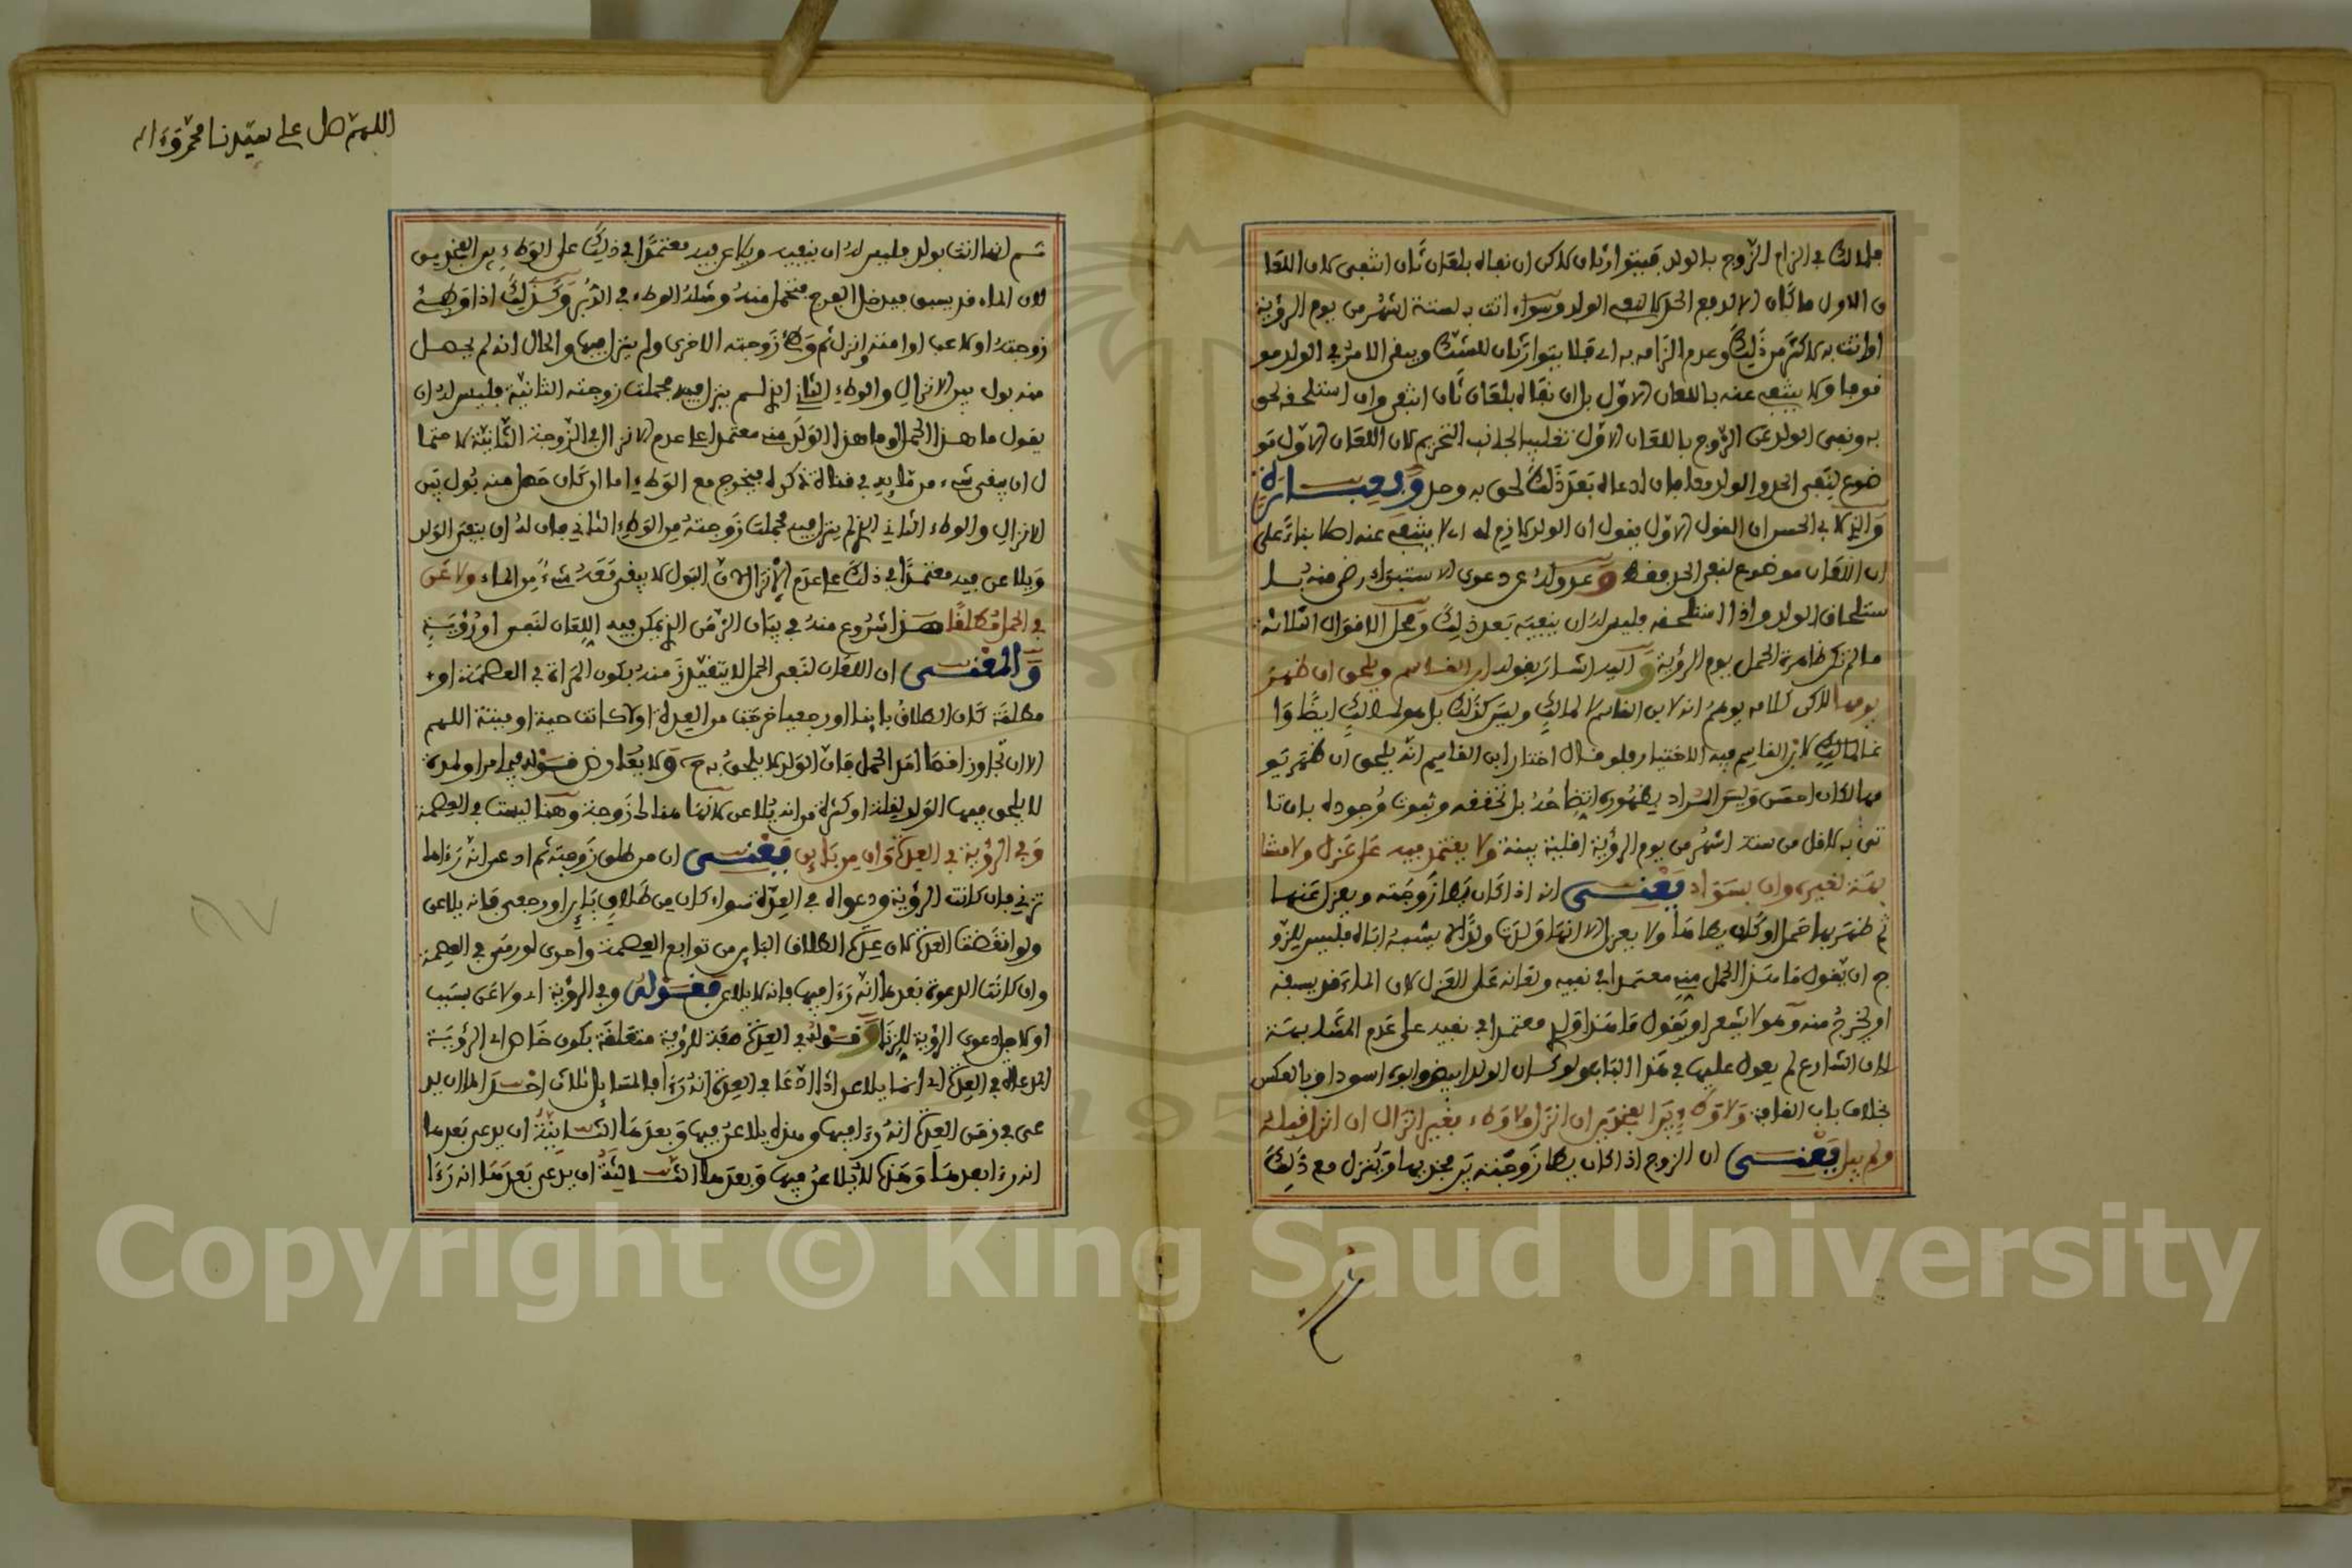 فلمالك في الزام الزوج بالولد فيتوارثان لاكن ان نفاه بلعان ثان انتفى لان اللعا
ن الاول ما كان الا لدفع الحد لا لنفي الولد وسواء اتت به لستة اشهر من يوم الرؤية
او اتت به لاكثر من ذلك وعدم الزامه به اي فلا يتوارثان للشك ويبقى الامر في الولد مو
قوفا ولا ينتفي عنه باللعان الاول بل ان نفاه بلعان ثان انتفى وان استلحقه لحق
به ونفي الولد عن الزوج باللعان الاول تغليبا لجانب التحريم لان اللعان الاول مو
ضوع لنفي الحد والولد معا فان ادعاه بعد ذلك لحق به وحد وفي عبارة
والذي لابي الحسن ان القول الاول يقول ان الولد لازم له اي لا ينتفي عنه اصلا بناء على
ان اللعان موضوع لنفي الحد فقط وعدوله عن دعوى الاستبراء رضى منه با
ستلحاق الولد واذا استلحقه فليس له ان ينفيه بعد ذلك ومحل الاقوال الثلاثة
ما لم تكن ظاهرة الحمل يوم الرؤية واليه اشار بقوله ابن القاسم ويلحق ان ظهر
يومها لاكن كلامه يوهم انه لابن القاسم لا لمالك وليس كذلك بل هو لمالك ايضا وا
نما لمالك لابن القاسم فيه الاختيار فلو قال اختار ابن القاسم انه يلحق ان ظهر يو
مها لكان احسن وليس المراد بظهوره اتضاحه بل تحققه وثبوت وجوده بان تا
تي به لاقل من ستة اشهر من يوم الرؤية اقلية بينة ولا يعتمد فيه على عزل ولا مشا
بهة لغيره وان بسواد يعني انه اذا كان يطا زوجته ويعزل عنها
ثم ظهر بها حمل او كان يطاها ولا يعزل الا انها ولدت ولدا لا يشبه اباه فليس للزو
ج ان يقول ما هذا الحمل مني معتمدا في نفيه ولعانه على العزل لان الماء قد يسبقه
او يخرج منه وهو لا يشعر او يقول ما هذا ولدي معتمدا في نفيه على عدم المشابهة
لان الشارع لم يعول عليها في هذا الباب ولو كان الولد ابيض وابوه اسود او بالعكس
بخلاف باب القافة ولا وطء بين الفخذين ان انزل ولا وطء بغير انزال ان انزل قبله
ولم يبل يعني ان الزوج اذا كان يطا زوجته بين فخذيها وينزل مع ذلك
اللهم صل على سيدنا محمد وءاله
ثم انها اتت بولد فليس له ان ينفيه ويلاعن فيه معتمدا في ذلك على الوطء بين الفخذين
لان الماء قد يسبق فيدخل الفرج فتحمل منه ومثله الوطء في الدبر وكذلك اذا وطئ
زوجته او لاعب او امنى وانزل ثم وطئ زوجته الاخرى ولم ينزل فيها والحال انه لم يحصل
منه بول بين الانزال والوطء الثاني الذي لم ينزل فيه فحملت زوجته الثانية فليس له ان
يقول ما هذا الحمل او ما هذا الولد منه معتمدا على عدم الانزال في الزوجة الثانية لاحتما
ل ان يبقى شيء من مائه في قناة ذكره فيخرج مع الوطء اما ان كان حصل منه بول بين
الانزال والوطء الثاني الذي لم ينزل فيه فحملت زوجته من الوطء الثاني فان له ان ينفي الولد
ويلاعن فيه معتمدا في ذلك على عدم الانزال لان البول لا يبقى معه شيء من الماء ولاعن
في الحمل مطلقا هذا شروع منه في بيان الزمن الذي يكون فيه اللعان لنفي او رؤية
والمعنى ان اللعان لنفي الحمل لا يتقيد زمنه بكون المراة في العصمة او
مطلقة كان الطلاق باينا او رجعيا خرجت من العدة او لا كانت حية او ميتة اللهم
الا ان تجاوز اقصا امد الحمل فان الولد لا يلحق به ح ولا يعارض قوله فيما مر او لمدة
لا يلحق فيها الولد لقلة او كثرة من انه يلاعن لانها هناك زوجة وهنا ليست في العصمة
وفي الرؤية في العدة وان من باين يعني ان من طلق زوجته ثم ادعى انه رءاها
تزني فان كانت الرؤية ودعواه في العدة سواء كان من طلاق باين او رجعي فانه يلاعن
ولو انقضت العدة لان عدة الطلاق الباين من توابع العصمة واحرى لو رمى في العصمة
وان كانت الدعوة بعدها انه رءا فيها فانه لا يلاعن فقوله وفي الرؤية اي ولاعن بسبب
او لاجل دعوى الرؤية للزنا وقوله في العدة صفة للرؤية متعلقة بكون خاص اي الرؤية
المدعاة في العدة اي انما يلاعن اذا ادعا في العدة انه رءا فالمسائل ثلاث احداها ان يد
عي في زمن العدة انه رءا فيها وهذه يلاعن فيها وبعدها الثانية ان يدعي بعدها
انه رءا بعدها وهذه لا يلاعن فيها وبعدها الثالثة ان يدعي بعدها انه رءا
Copyright © King Saud University